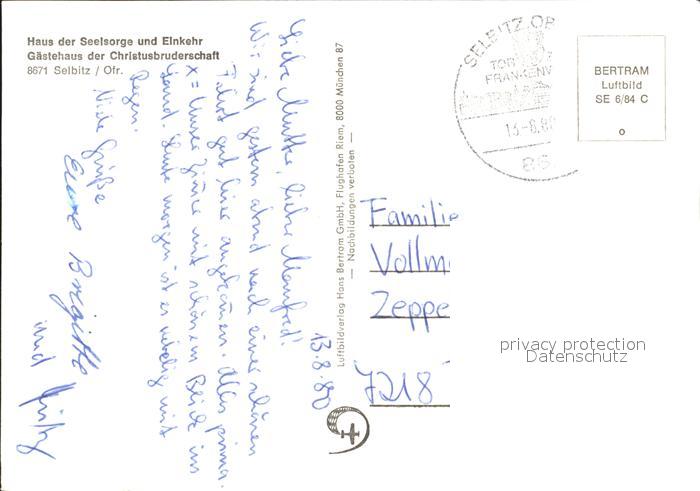 Haus der Seelsorge und Einkehr
Gästehaus der Christusbruderschaft
8671 Selbitz / Ofr.
Liebe Mutter, liebe Manfred!
Wir sind gestern abend nach einer schönen
Fahrt gut hier angekommen. Alles prima.
x = Unser Zimmer mit schönem Blick ins
Land. Heute morgen ist es neblig mit
Regen.
Viele Grüße
Eure Brigitte
und Fritz
13.8.80
Luftbildverlag Hans Bertram GmbH, Flughafen Riem, 8000 München 87
— Nachbildungen verboten —
SELBITZ, OF
TOR
FRANKENW
13-8.80
86
BERTRAM
Luftbild
SE 6/84 C
o
Familie
Vollm
Zeppe
7218
privacy protection
Datenschutz